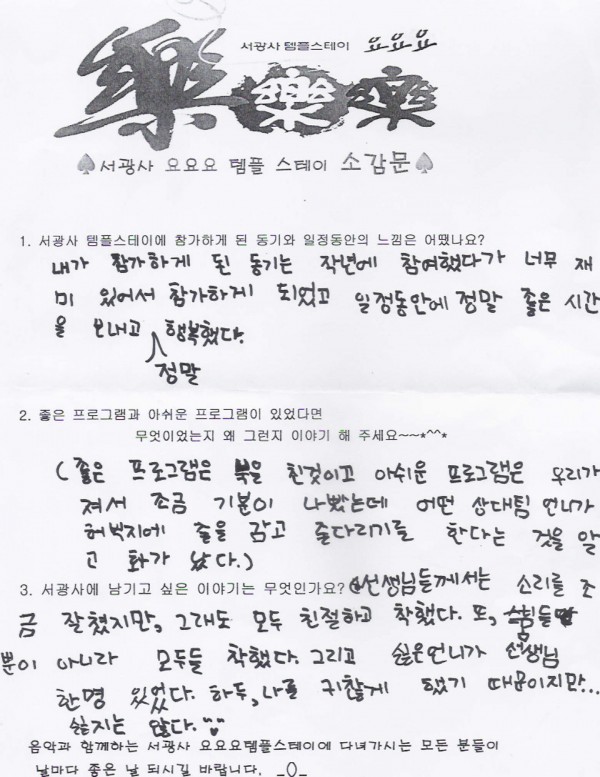 서광사 템플스테이 요요요
樂 樂 樂
♠서광사 요요요 템플 스테이 소감문♠
1. 서광사 템플스테이에 참가하게 된 동기와 일정동안의 느낌은 어땠나요?
내가 참가하게 된 동기는 작년에 참여했다가 너무 재
미 있어서 참가하게 되었고 일정동안에 정말 좋은 시간
을 보내고 행복했다.
정말
2. 좋은 프로그램과 아쉬운 프로그램이 있었다면
무엇이었는지 왜 그런지 이야기 해 주세요~~*^^*
(좋은 프로그램은 북을 친것이고 아쉬운 프로그램은 우리가
져서 조금 기분이 나빴는데 어떤 상대팀 언니가
허벅지에 줄을 감고 줄다리기를 한다는 것을 알
고 화가 났다.)
3. 서광사에 남기고 싶은 이야기는 무엇인가요? 선생님들께서는 소리를 조
금 잘쳤지만, 그래도 모두 친절하고 착했다. 또, 스님들
뿐이 아니라 모두들 착했다. 그리고 싫은언니가 선생님
한명 있었다. 하두, 나를 귀찮게 했기 때문이지만...
싫지는 않다.
음악과 함께하는 서광사 요요요템플스테이에 다녀가시는 모든 분들이
날마다 좋은 날 되시길 바랍니다. _()_